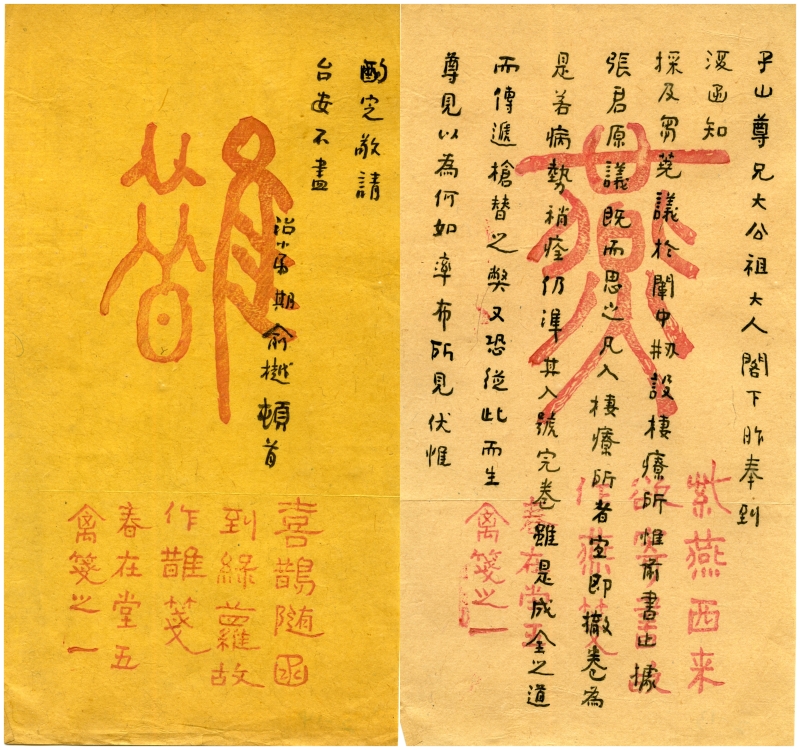 子山尊兄大公祖大人閣下昨奉到
復函知
採及芻蕘議於闈中刱設棲療所惟前書止據
張君原議既而思之凡入棲療所者宜即撤卷為
是若病勢稍痊仍準其入號完卷雖是成全之道
而傳遞槍替之弊又恐從此而生
尊見以為何如率布所見伏惟
燕
紫燕西来
欲寄書故
作燕箋
春在堂五
禽箋之一
酌定敬請
台安不盡
治小弟期俞樾頓首
䧿
喜鵲随函
到綠蘿故
作䧿箋
春在堂五
禽箋之一